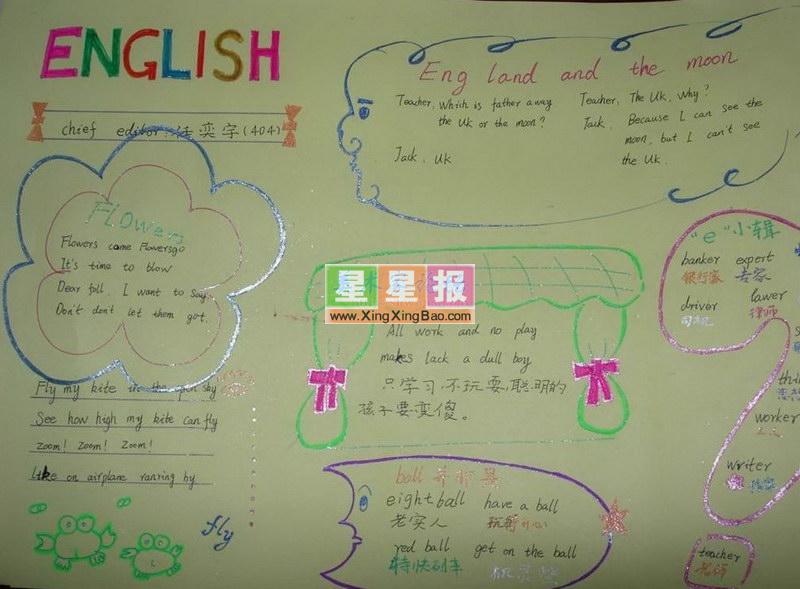 ENGLISH
chief editor: 奕字(404)
Flowers
Flowers come Flowersgo
It's time to blow
Dear fall I want to say
Don't don't let them got.
Fly my kite in the sky
See how high my kite can fly
zoom! zoom! zoom!
Like on airplane ranring by
fly
Eng land and the moon
Teacher: Which is father away
the UK or the moon?
Jack. UK
Teacher: The UK, Why?
Jack. Because I can see the
moon, but I can't see
the UK.
星星报
www.XingXingBao.com
All work and no play
makes lack a dull boy
只学习,不玩耍,聪明的
孩子要变傻。
ball
eight ball have a ball
老实人 玩得开心
red ball get on the ball
特快列车
"e"小辑
banker expert
银行家 专家
driver lawer
司机 律师
worker
工人
writer
teacher
老师